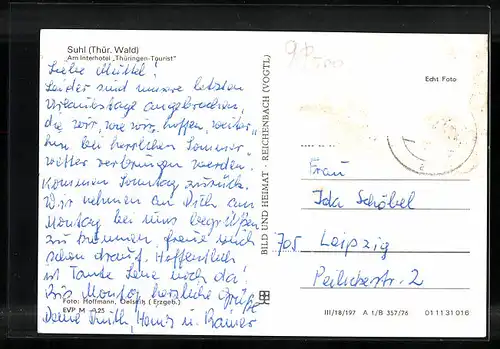 Suhl (Thür. Wald)
"Am Interhotel „Thüringen-Tourist"
Liebe Mutter!
Leider sind unsere letzten
Urlaubstage angebrochen,
die wir, wie wir hoffen, weiter-
hin bei herrlichem Sommer-
wetter verbringen werden.
Kommen Sonntag zurück.
Wir nehmen an Dich am
Montag bei uns begrüßen
zu können, freue mich
schon drauf. Hoffentlich
ist Tante Lene noch da!
Bis Montag herzliche Grüße
Deine Ruth, Hans u. Rainer
Foto: Hoffmann, Oelsnitz (Erzgeb.)
EVP M 0,25
BILD UND HEIMAT · REICHENBACH (VOGTL)
Echt Foto
Frau
Ida Schöbel
705 Leipzig
III/18/197 A 1/B 357/76 01 11 31 016